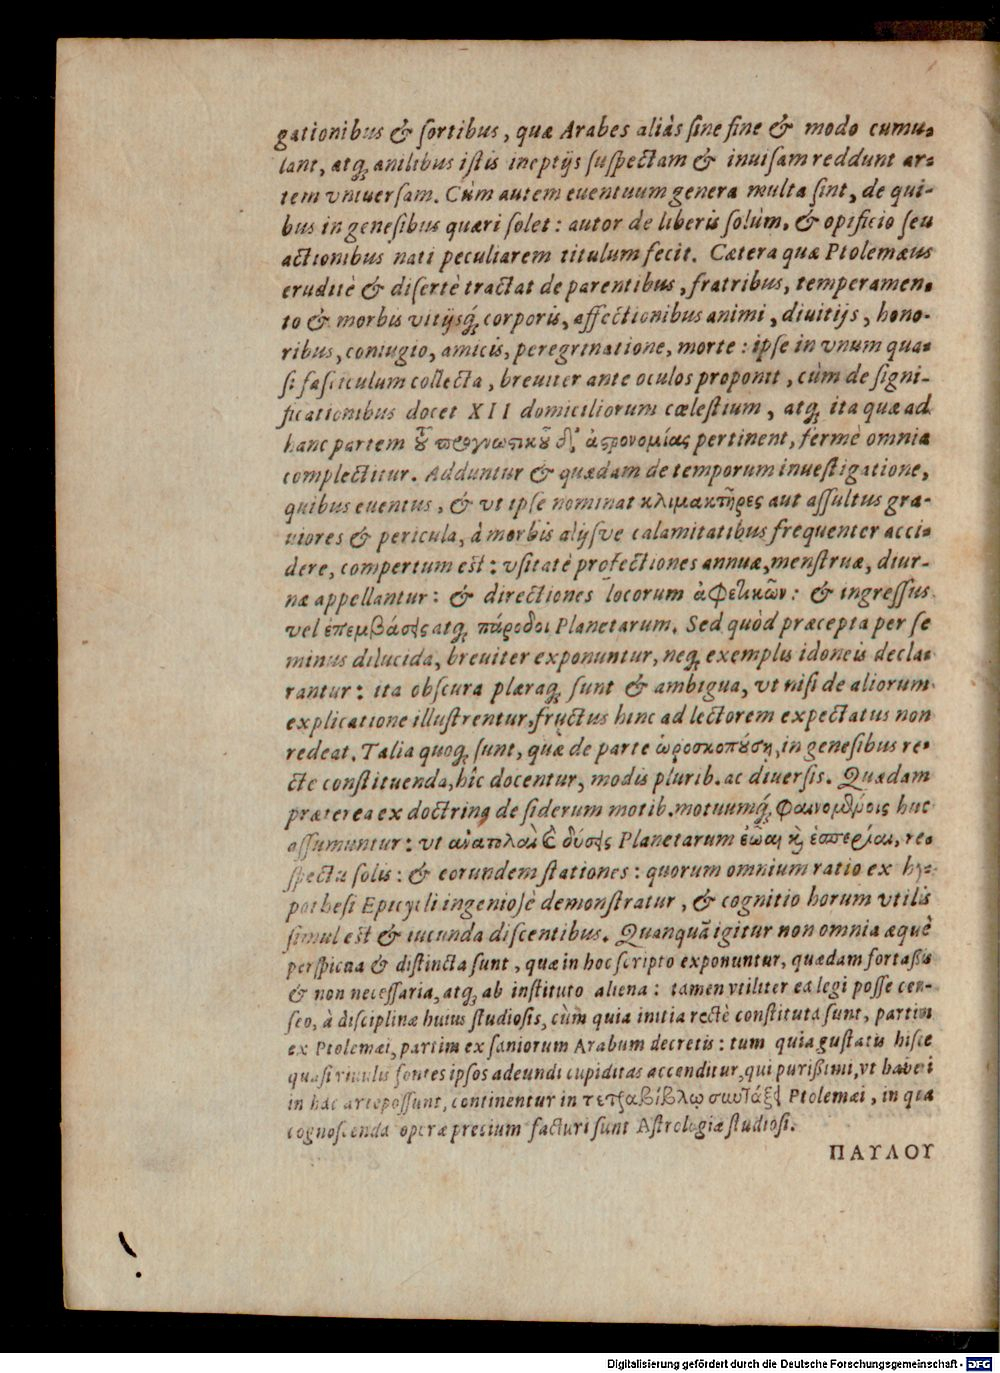 gationibus & ſortibus, quæ Arabes aliàs ſine fine & modo cumu-
lant, atq; anilibus iſtis ineptijs ſuſpectam & inuiſam reddunt ar-
tem vniuerſam. Cùm autem euentuum genera multa ſint, de qui-
bus in geneſibus quæri ſolet: autor de liberis ſolùm, & opificio ſeu
actionibus nati peculiarem titulum fecit. Cætera quæ Ptolemæus
eruditè & diſertè tractat de parentibus, fratribus, temperamen-
to & morbis vitijsq; corporis, affectionibus animi, diuitijs, hono-
ribus, coniugio, amicis, peregrinatione, morte: ipſe in vnum qua-
ſi faſciculum collecta, breuiter ante oculos proponit, cùm de ſigni-
ficationibus docet XII domiciliorum cœleſtium, atq; ita quæ ad
hanc partem τοῦ προγνωστικοῦ τῆς ἀστρονομίας pertinent, fermè omnia
complectitur. Adduntur & quædam de temporum inueſtigatione,
quibus euentus, & vt ipſe nominat κλιμακτῆρες aut aſſultus gra-
uiores & pericula, à morbis alijsve calamitatibus frequenter acci-
dere, compertum est: vſitatè profectiones annuæ, menſtruæ, diur-
næ appellantur: & directiones locorum ἀφετικῶν: & ingreſſus
vel ἐπεμβάσεις atq; πάροδοι Planetarum. Sed quòd præcepta per ſe
minus dilucida, breuiter exponuntur, neq; exemplis idoneis decla-
rantur: ita obſcura pleraq; ſunt & ambigua, vt niſi de aliorum
explicatione illuſtrentur, fructus hinc ad lectorem expectatus non
redeat. Talia quoq; ſunt, quæ de parte ὡροσκοπούσῃ, in geneſibus re-
cte conſtituenda, hîc docentur, modis plurib. ac diuerſis. Quædam
præterea ex doctrina de ſiderum motib. motuumq; φαινομένοις huc
aſſumuntur: vt ἀνατολαὶ & δύσεις Planetarum ἑῶαι καὶ ἑσπερίαι, re-
ſpectu ſolis: & eorundem ſtationes: quorum omnium ratio ex hy-
potheſi Epicycli ingenioſè demonſtratur, & cognitio horum vtilis
ſimul est & iucunda diſcentibus. Quanquā igitur non omnia æquè
perſpicua & diſtincta ſunt, quæ in hoc ſcripto exponuntur, quædam fortaßis
& non neceſſaria, atq; ab inſtituto aliena: tamen vtiliter ea legi poſſe cen-
ſeo, à diſciplinæ huius ſtudioſis, cùm quia initia rectè conſtituta ſunt, partim
ex Ptolemæi, partim ex ſaniorum Arabum decretis: tum quia guſtatis hiſce
quaſi riuulis fontes ipſos adeundi cupiditas accenditur, qui purißimi, vt haberi
in hac arte poſſunt, continentur in τετραβίβλῳ συντάξει Ptolemæi, in qua
cognoſcenda operæprecium facturi ſunt Aſtrologiæ ſtudioſi.
ΠΑΥΛΟΥ
Digitalisierung gefördert durch die Deutsche Forschungsgemeinschaft - DFG